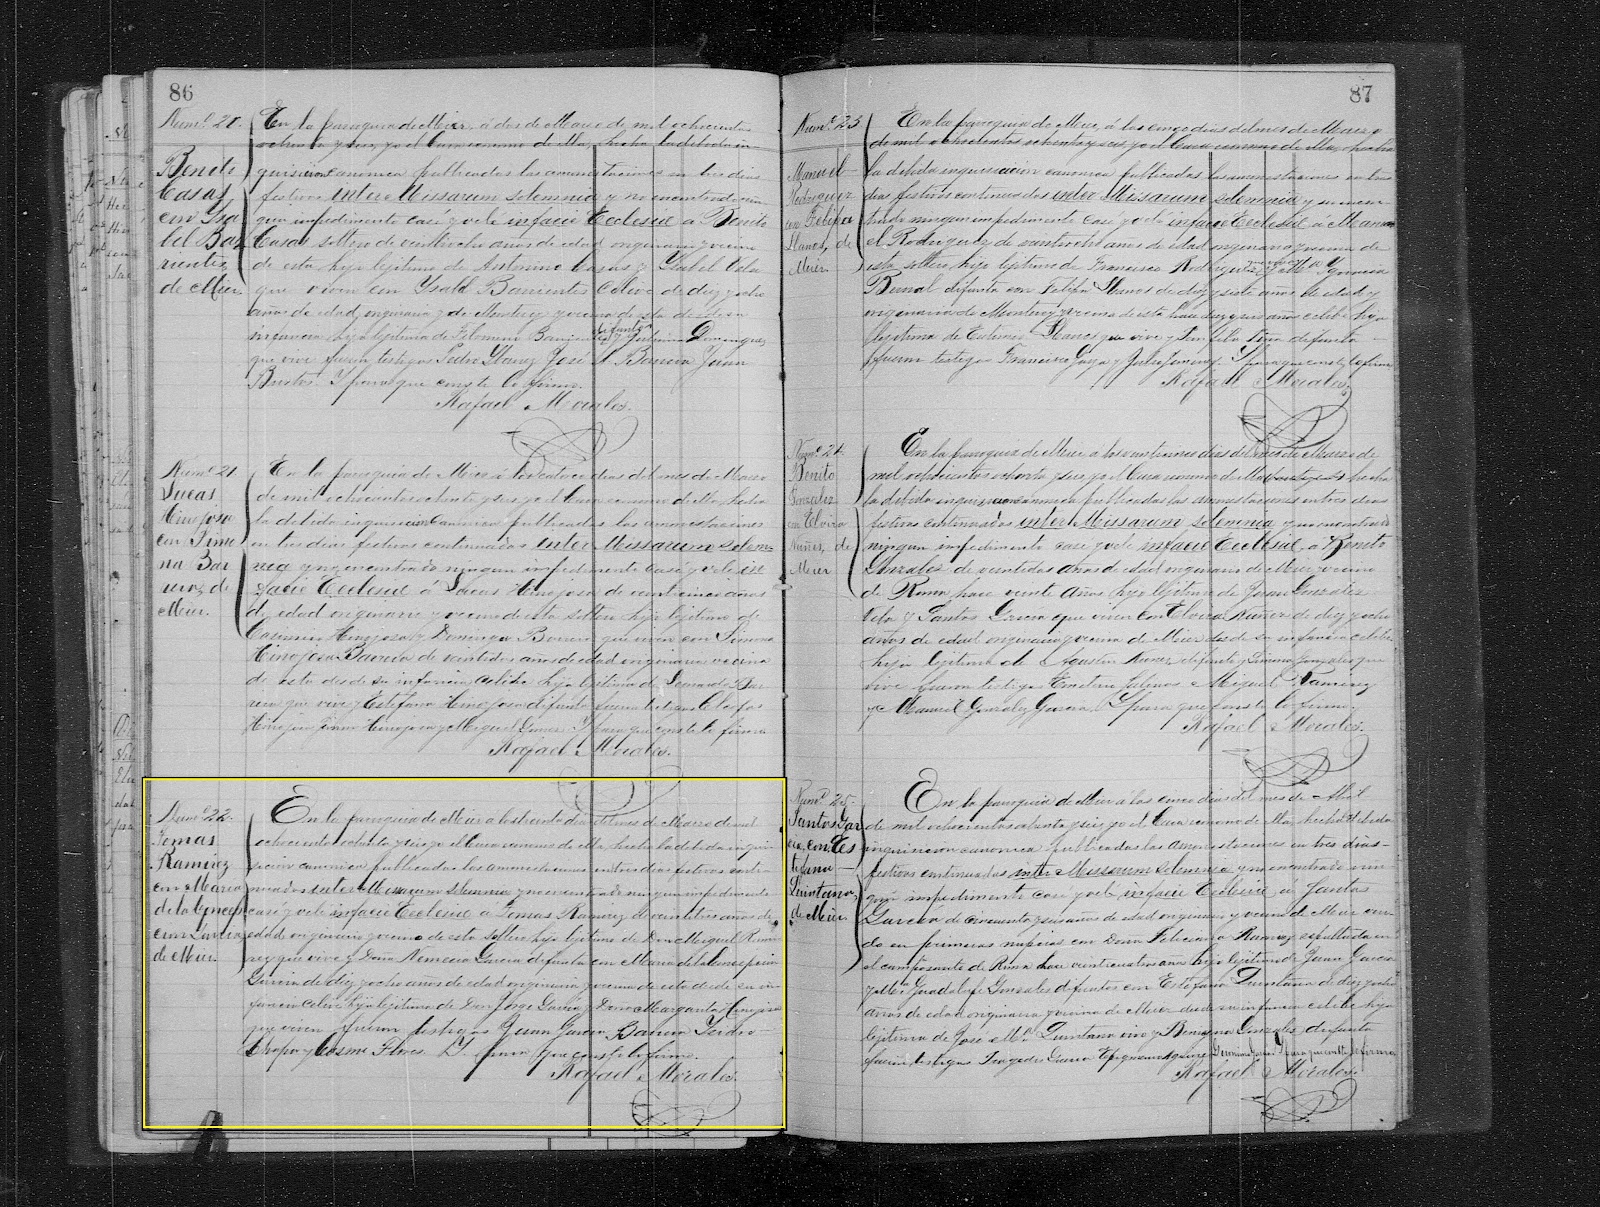 86
Num.º 20.
Benito
Casas
con Isa
bel Bar
rientes,
de Mier.
En la parroquia de Mier, á dos de Marzo de mil ochocientos
ochenta y seis, yo el Cura
quisicion canonica publicadas las amonestaciones en tres dias
festivos inter Missarum solemnia y no encontrado nin
gun impedimento casé y velé infacie Ecclesiæ a Benito
Casas soltero de veintiocho años de edad originario y vecino
de esta hijo lejitimo de Antonino Casas y Isabel
que viven con Ysabel Barrientes Celibe de diez y ocho
años de edad, originaria de Monterey y vecina de esta desde su
infancia hija lejitima de Filomeno difunta
y Dominguez
que vive fueron testigos Pedro José M. Barrera Juan
Bustos. Y para que conste lo firmo.
Rafael Morales.
Num.º 21.
Lucas
Hinojosa
con Simo
na Bar
rera, de
Mier.
En la parroquia de Mier á los catorce dias del mes de Marzo
de mil ochocientos ochenta y seis yo el Cura
la debida inquisicion Canonica publicadas las amonestaciones
en tres dias festivos continuados inter Missarum solem
nia y no encontrado ningun impedimento casé y velé in
facie Ecclesiæ á Lucas Hinojosa de veinticinco años
de edad originario y vecino de esta soltero hijo lejitimo de
Casimiro Hinojosa y Dominga Barrera que viven con Simona
Hinojosa Barrera de veintidos años de edad originaria vecina
de esta desde su infancia celibe hija lejitima de Leonardo Bar
rera que vive y Estefana Hinojosa difunta fueron testigos
Hinojosa Hinojosa y Miguel Y para que conste lo firmo.
Rafael Morales.
Num.º 22.
Tomas
Ramirez
con Maria
de la Concep
cion Garcia,
de Mier.
En la parroquia de Mier a los treinta dias del mes de Marzo de mil
ochocientos ochenta y seis yo el Cura hecha la debida inqui
sicion canonica publicadas las amonestaciones en tres dias festivos conti
nuados inter Missarum solemnia y no encontrado ningun impedimento
casé y velé infacie Ecclesiæ á Tomas Ramirez de veintitres años de
edad originario y vecino de esta soltero hijo lejitimo de Don Miguel Rami
rez que vive y Doña Nemecia Garcia difunta con Maria de la Concepcion
Garcia de diez y ocho años de edad originaria y vecina de esta desde su in
fancia Celibe hija lejitima de Don Jorge Garcia y Doña Margarita Hinojosa
que viven fueron testigos Juan Garcia Barrera Ysidro
Chapa y Cosme Flores. Y para que conste lo firmo.
Rafael Morales.
87
Num.º 23
Manuel
Rodriguez
con Felipa
Llanos, de
Mier.
En la parroquia de Mier, á los cinco dias del mes de Marzo
de mil ochocientos ochenta y seis yo el Cura
la debida inquisicion canonica publicadas las amonestaciones en tres
dias festivos continuados inter Missarum solemnia y no encon
trado ningun impedimento casé y velé infacie Ecclesiæ á Manu
el Rodriguez de veintiocho años de edad originario y vecino de
esta soltero hijo lejitimo de Francisco Rodriguez que vive y Ma Ygnacia
Bernal difunta con Felipa Llanos de diez y siete años de edad y
originaria de Monterey vecina de esta hace diez y seis años celibe hija
lejitima de Llanos que vive y difunta
fueron testigos Francisco Garza y Y para que conste lo firmo
Rafael Morales.
Num.º 24.
Benito
Gonzalez
con Elvira
Nuñez, de
Mier
En la parroquia de Mier, a los veintinueve dias del mes de Marzo de
mil ochocientos ochenta y seis yo el Cura hecha
la debida inquisicion canonica publicadas las amonestaciones en tres dias
festivos continuados inter Missarum solemnia y no encontrado
ningun impedimento casé y velé infacie Ecclesiæ á Benito
Gonzalez de veintidos años de edad originario de Mier y vecino
de Roma hace veinte años, hijo lejitimo de Juan Gonzalez
Vela y Santos Garcia que viven con Elvira Nuñez de diez y ocho
años de edad originaria y vecina de Mier desde su infancia celibe
hija lejitima de Agustin Nuñez difunto y Simona Gonzalez que
vive fueron testigos Emeterio Salinas Miguel Ramirez
y Manuel Gonzalez Garcia. Y para que conste lo firmo.
Rafael Morales.
Num.º 25.
Santos Gar
cia, con Es
tefana
Quintana,
de Mier.
En la parroquia de Mier á los cinco dias del mes de Abril
de mil ochocientos ochenta y seis, yo el Cura hecha la debida
inquisicion canonica publicadas las amonestaciones en tres dias
festivos continuados inter Missarum solemnia y no encontrado nin
gun impedimento casé y velé infacie Ecclesiæ á Santos
Garcia de cincuenta y seis años de edad originario y vecino de Mier viu
do en primeras nupcias con Doña Feliciana Ramirez sepultada en
el camposanto de Roma hace veinticuatro años hijo lejitimo de Juan Garcia
y Ma. Guadalupe Gonzales difuntos con Estefana Quintana de diez y ocho
años de edad originaria y vecina de Mier desde su infancia celibe hija
lejitima de José Ma. Quintana vivo y Benigna Gonzales difunta
fueron testigos Garcia Epigmenio Y para que conste lo firmo
Rafael Morales.